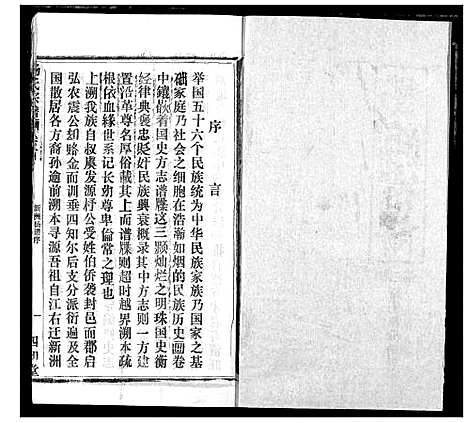 序言
举国五十六个民族统为中华民族家族乃国家之基
础家庭乃社会之细胞在浩瀚如烟的民族历史画卷
中镶嵌着国史方志谱牒这三颗灿烂之明珠国史衡
经律典褒忠贬奸民族興衰概录其中方志则一方建
置沿革尊名厚俗藏其上而谱牒则超时越界溯本疏
根依血緣世系记长幼尊卑倫常之理也
上溯我族自叔虞发源杼公受姓伯侨袭封邑而郡启
弘农震公却赂金而训垂四知尔后支分派衍遍及全
国散居各方裔孙逾前溯本寻源吾祖自江右迁新洲
新洲杨谱序
一
四知堂